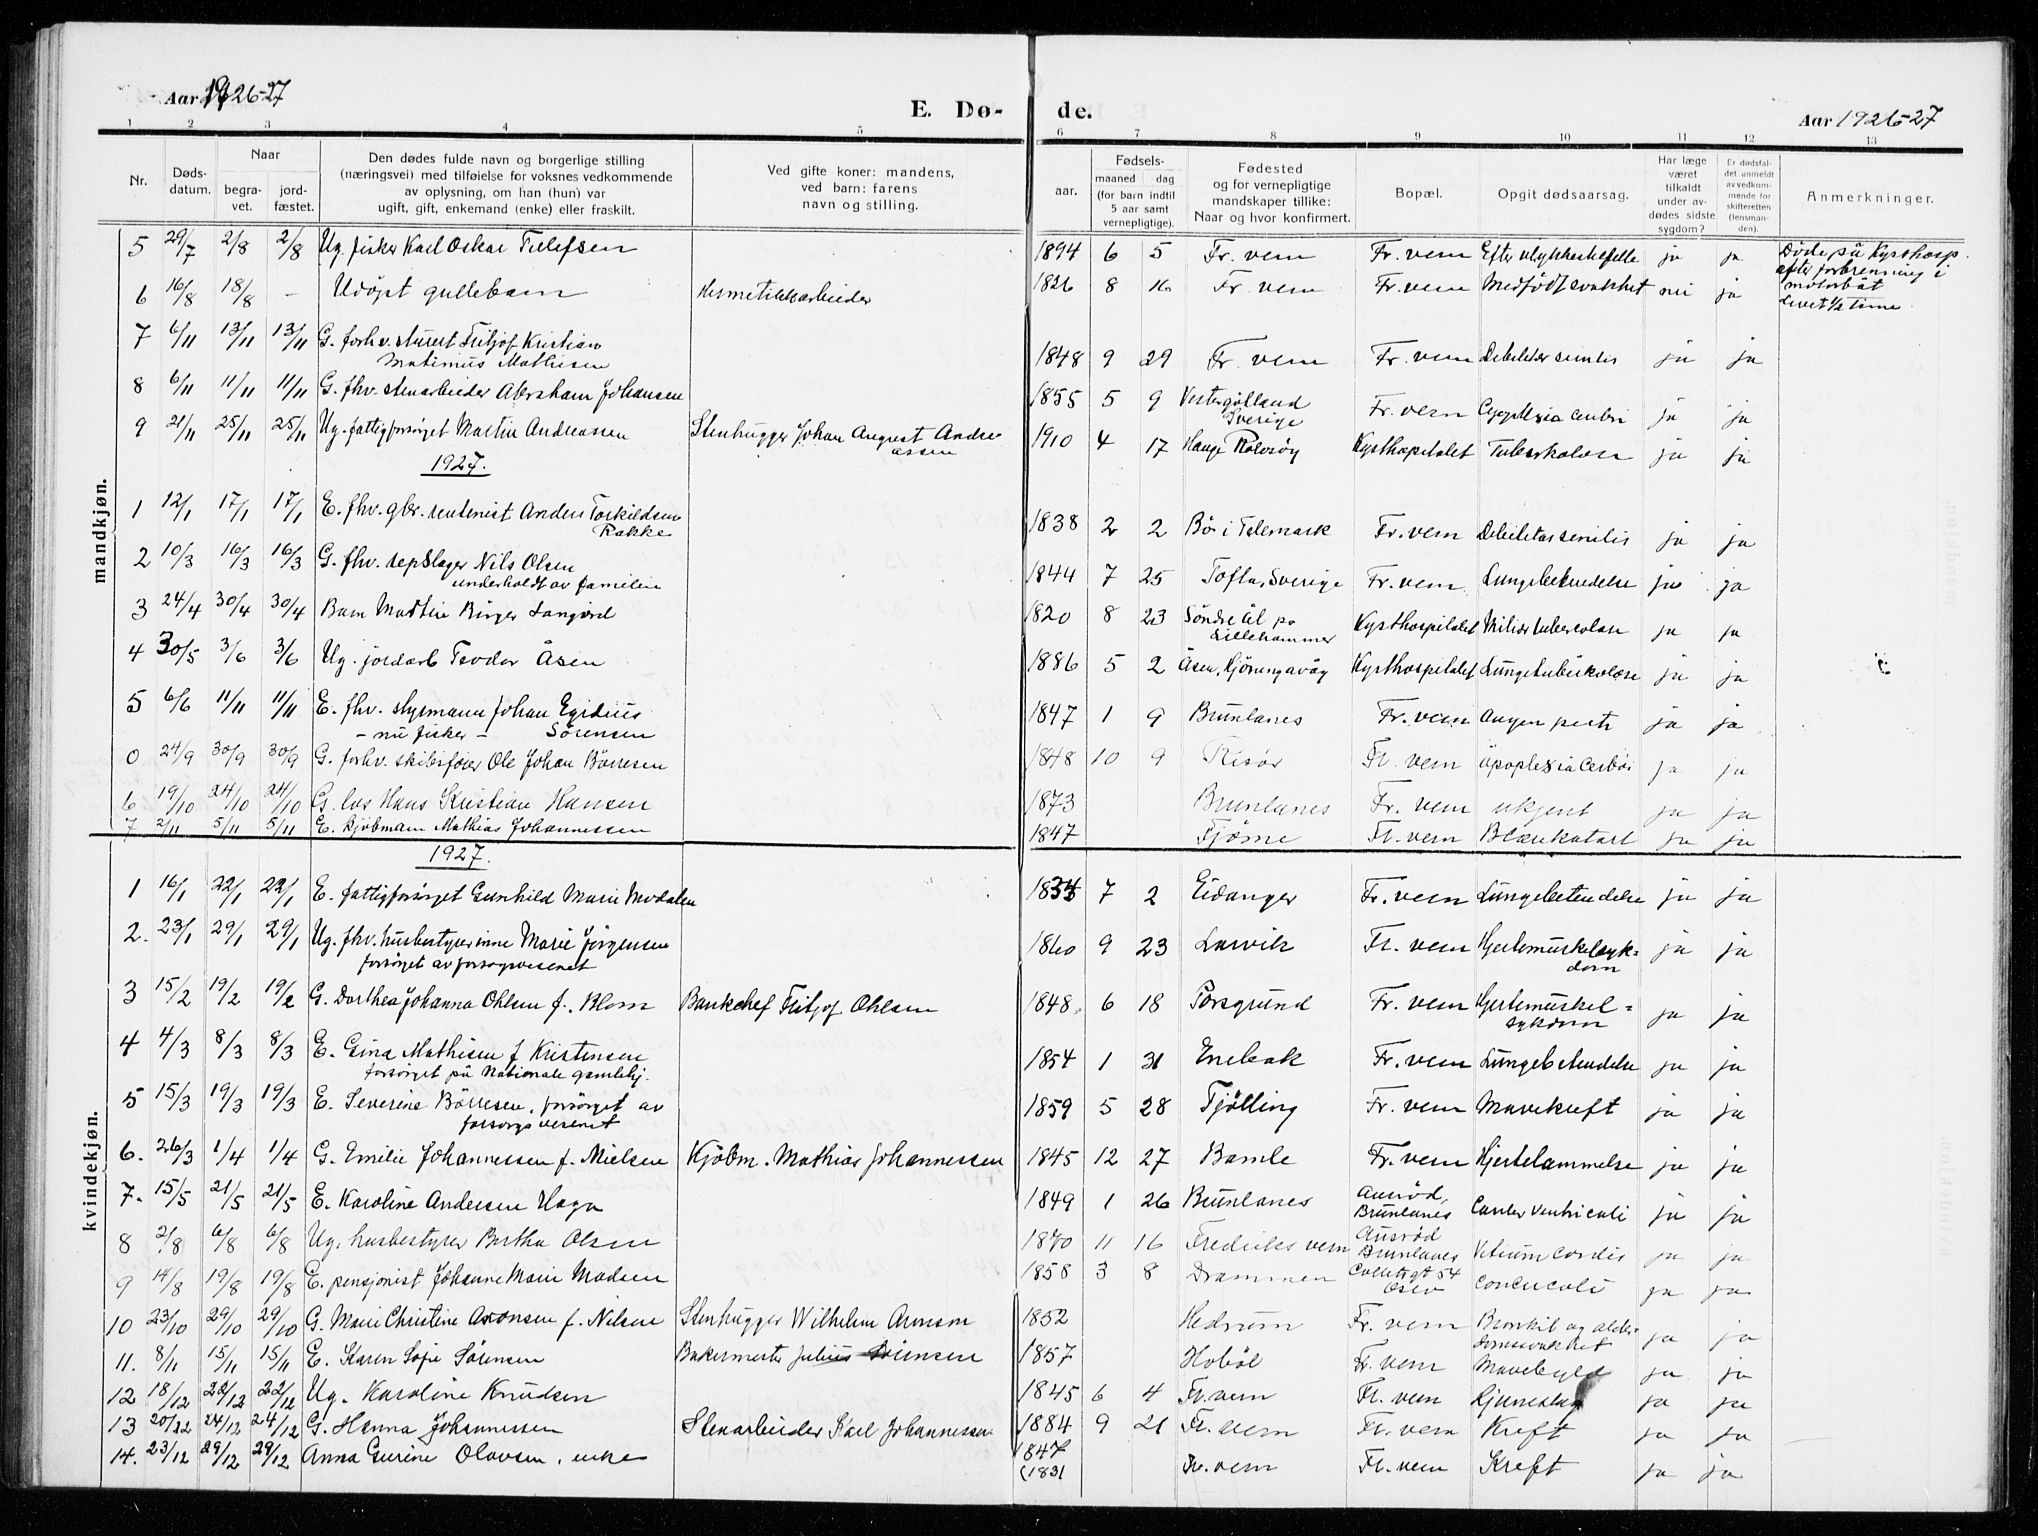 Aar 1926-27
E. Dø-
de.
Aar 1926-27
1 2 3 4 5 6 7 8 9 10 11 12 13
Nr.
Døds-
datum.
Naar
begra-
vet.
jord-
fæstet.
Den dødes fulde navn og borgerlige stilling
(næringsvei) med tilføielse for voksnes vedkommende
av oplysning, om han (hun) var
ugift, gift, enkemand (enke) eller fraskilt.
Ved gifte koner: mandens,
ved barn: farens
navn og stilling.
Fødsels-
aar.
maaned
dag
(for barn indtil
5 aar samt
vernepligtige).
Fødested
og for vernepligtige
mandskaper tillike:
Naar og hvor konfirmert.
Bopæl.
Opgit dødsaarsag.
Har læge
været
tilkaldt
under av-
dødes sidste
sygdom?
Er dødsfal-
det anmeldt
av vedkom-
mende for
skifteretten
(lensman-
den).
Anmerkninger.
mandkjøn.
5 29/7 2/8 2/8 Ug. fisker Karl Oskar Tellefsen 1894 6 5 Fr. vern Fr. vern Efter ulykkestilfelle ja ja Døde på Kysthosp.
efter forbrenning i
motorbåt
6 16/8 18/8 – Udøpt guttebarn Hermetikkarbeider 1926 8 16 Fr. vern Fr. vern Medfødt svakhet nei ja Levet 1/2 time
7 6/11 13/11 13/11 G. forhv. stuert Fritjof Kristian
Matinius Mathisen 1848 9 29 Fr. vern Fr. vern Debilitas senilis ja ja
8 6/11 11/11 11/11 G. fhv. stenarbeider Abraham Johansen 1855 5 9 Vestergötland
Sverige Fr. vern Apoplexia cerebri ja ja
9 21/11 25/11 25/11 Ug. fattigforsørget Martin Andreassen Stenhugger Johan August Andre-
assen 1910 4 17 Hauge Rolvsøy Kysthospitalet Tuberkulose ja ja
1927.
1 12/1 17/1 17/1 E. fhv. gbr. rentenist Anders Torkildsen
Rakke 1838 2 2 Bø i Telemark Fr. vern Debilitas senilis ja ja
2 10/3 16/3 16/3 G. fhv. repslager Nils Olsen
underholdt av familien 1844 7 25 Tofta, Sverige Fr. vern Lungebetendelse ja ja
3 24/4 30/4 30/4 Barn Martin Birger Langård 1920 8 23 Søndre Ål pr
Lillehammer Kysthospitalet Miliær tuberculose ja ja
4 30/5 3/6 3/6 Ug. jordarb Teodor Åsen 1886 5 2 Åsen, Hjørungavåg Kysthospitalet Lungetuberkulose ja ja
5 6/6 11/11 11/11 E. fhv. styrmann Johan Egidius
– nu fisker – Sørensen 1847 1 9 Brunlanes Fr. vern Angin pect. ja ja
0 24/9 30/9 30/9 G. forhv. skibsfører Ole Johan Børresen 1848 10 9 Risør Fr. vern Apoplexia Cerebri ja ja
6 19/10 24/10 24/10 G. los Hans Kristian Hansen 1873 Brunlanes Fr. vern ukjent ja ja
7 2/11 5/11 5/11 E. kjøbmann Mathias Johannessen 1847 Tjøme Fr. vern Blærekatarr ja ja
kvindekjøn.
1927.
1 16/1 22/1 22/1 E. fattigforsørget Gunhild Marie Modalen 7 2 Eidanger Fr. vern Lungebetendelse ja ja
2. 23/1 29/1 29/1 Ug. fhv. husbestyrerinne Marie Jørgensen
forsørget av forsorgsvesenet 1860 9 23 Larvik Fr. vern Hjertemuskelsyk-
dom ja ja
3 15/2 19/2 19/2 G. Dorthea Johanna Ohlsen f. Blom Bankchef Fritjof Ohlsen 1848 6 18 Porsgrund Fr. vern Hjertemuskel-
sykdom ja ja
4 4/3 8/3 8/3 E. Gina Mathisen f Kristensen
forsørget på Nationale gamlehj. 1854 1 31 Enebak Fr. vern Lungebetendelse ja ja
5 15/3 19/3 19/3 E. Severine Børresen, forsørget av
forsorgsvesenet 1859 5 28 Tjølling Fr. vern Mavekreft ja ja
6. 26/3 1/4 1/4 G. Emilie Johannessen f. Nielsen Kjøbm. Mathias Johannessen 1845 12 27 Bamle Fr. vern Hjertelammelse ja ja
7. 15/5 21/5 21/5 E. Karoline Andersen Haga 1849 1 26 Brunlanes Ausrød,
Brunlanes Cancer ventriculi ja ja
8 2/8 6/8 6/8 Ug. husbestyrer Bertha Olsen 1870 11 16 Fredriksvern Ausrød
Brunlanes Vitium cordis ja ja
9 14/8 19/8 19/8 E. pensjonist Johanne Marie Madsen 1858 3 8 Drammen 54
Oslo ja ja
10 23/10 29/10 29/10 G. Marie Christine Aronsen f. Nilsen Stenhugger Wilhelm Aronsen 1852 Hedrum Fr. vern Bronkit og alder-
domssvakhet ja ja
11. 8/11 15/11 15/11 E. Karen Sofie Sørensen Bakermester Julius Sørensen 1857 Hobøl Fr. vern Mavebyld ja ja
12 18/12 22/12 22/12 Ug. Karoline Knudsen 1845 6 4 Fr. vern Fr. vern Hjerneslag ja ja
13 20/12 24/12 24/12 G. Hanna Johannessen Stenarbeider Karl Johannessen 1884 9 21 Fr. vern Fr. vern Kreft ja ja
14. 23/12 29/12 29/12 Anna Gurine Olavsen, enke 1847
(1831 Fr. vern Fr. vern Kreft ja ja